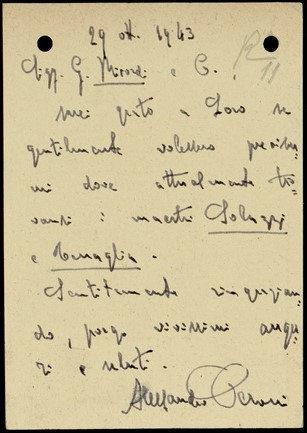 29 ott. 1943
R 11
Sigg. G. Mirandi e C.,
sarei grato a Loro se
gentilmente volessero precisar
mi dove attualmente tro
vansi i maestri Solazzi
e Tarraglia.
Sentitamente ringrazian
do, porgo vivissimi augu
ri e saluti.
Alessandro Peroni